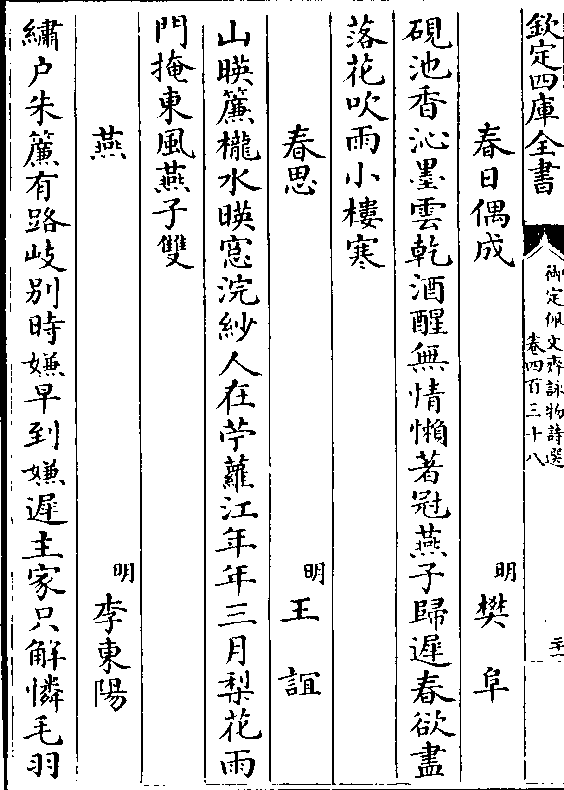 欽定四庫全書
御定佩文齋詠物詩選
卷四百三十八
二十一
春日偶成　明　樊阜
硯池香沁墨雲乾酒醒無情懶著冠燕子歸遲春欲盡
落花吹雨小樓寒
春思　明　王誼
山暎簾櫳水暎窓浣紗人在苧蘿江年年三月梨花雨
門掩東風燕子雙
燕　明　李東陽
繡户朱簾有路岐别時嫌早到嫌遲主家只解憐毛羽